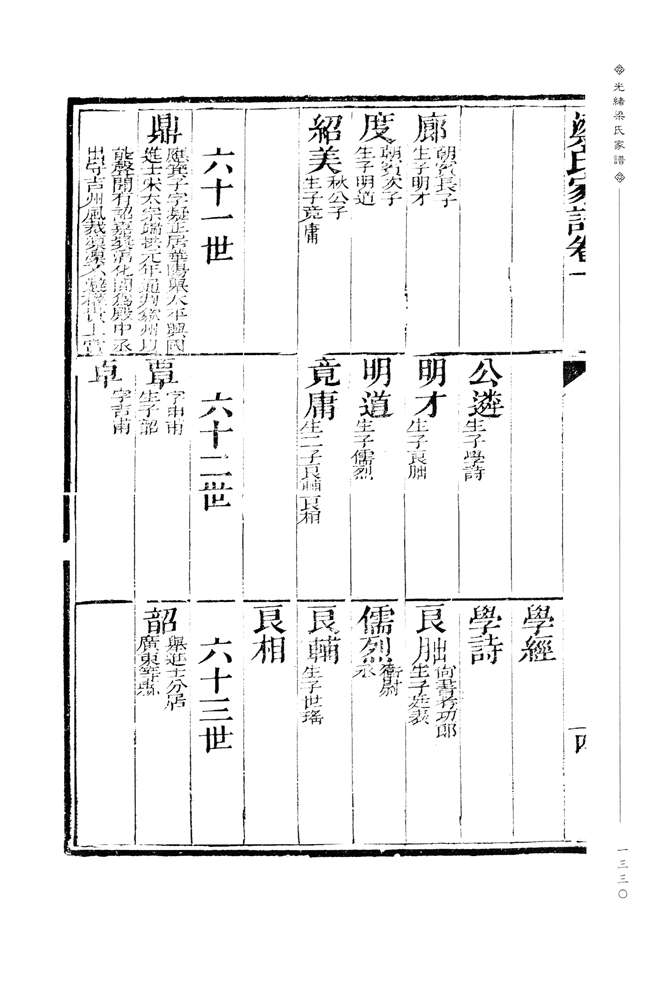 光緒梁氏家譜
一三三〇
梁氏家譜卷一
四
廊
朝賓長子
生子明才
度
朝賓次子
生子明道
紹美
秋公子
生子竟庸
六十一世
鼎
應箕子字凝正居華陽舉太平興國
進士宋太宗端拱元年通判歙州以
能聲聞有詔嘉奬淳化間為殿中丞
出守吉州風裁
公遴
生子學詩
明才
生子良朏
明道
生子儒烈
竟庸
生二子良輔良相
六十二世
覃
字申甫
生子韶
卓
字吉甫
學經
學詩
良朏
尚書考功郎
生子延表
儒烈
衛尉
丞
良輔
生子世瑤
良相
六十三世
韶
舉進士分居
廣東等處